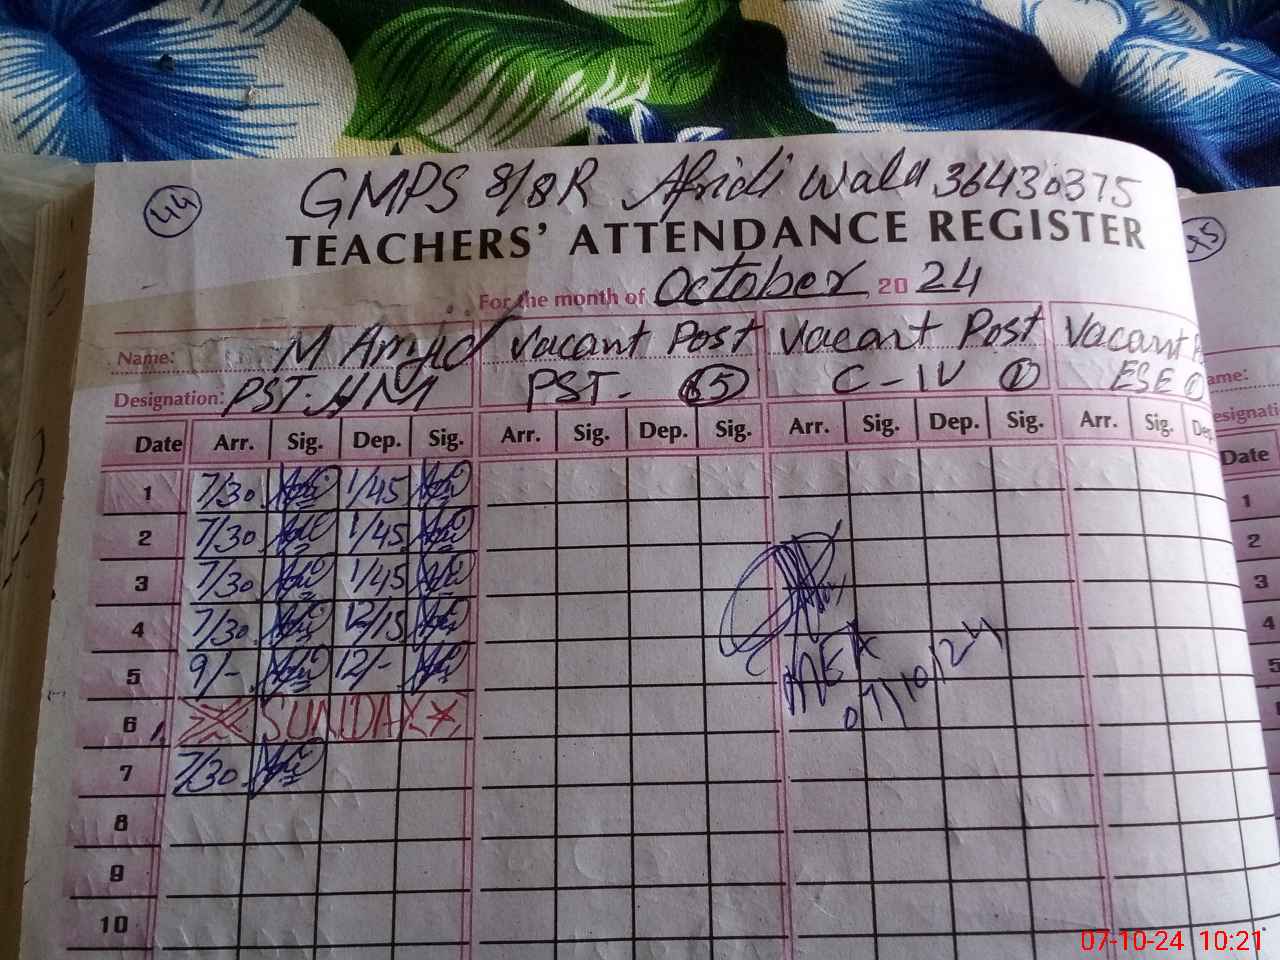 44
GMPS 8/8R Afridi Wala 36430375
TEACHERS' ATTENDANCE REGISTER
45
For the month of October 2024
Name: M Amjad Vacant Post Vacant Post Vacant
Designation: PST.HM PST- 5 C-IV 1 ESE 1
Date Arr. Sig. Dep. Sig. Arr. Sig. Dep. Sig. Arr. Sig. Dep. Sig. Arr. Sig. Dep. Date
1 7/30 1/45 1
2 7/30 1/45 2
3 7/30 1/45 3
4 7/30 12/15 4
5 9/- 12/- 5
6 SUNDAY
7 7/30
8
9
10
07/10/24
07-10-24 10:21